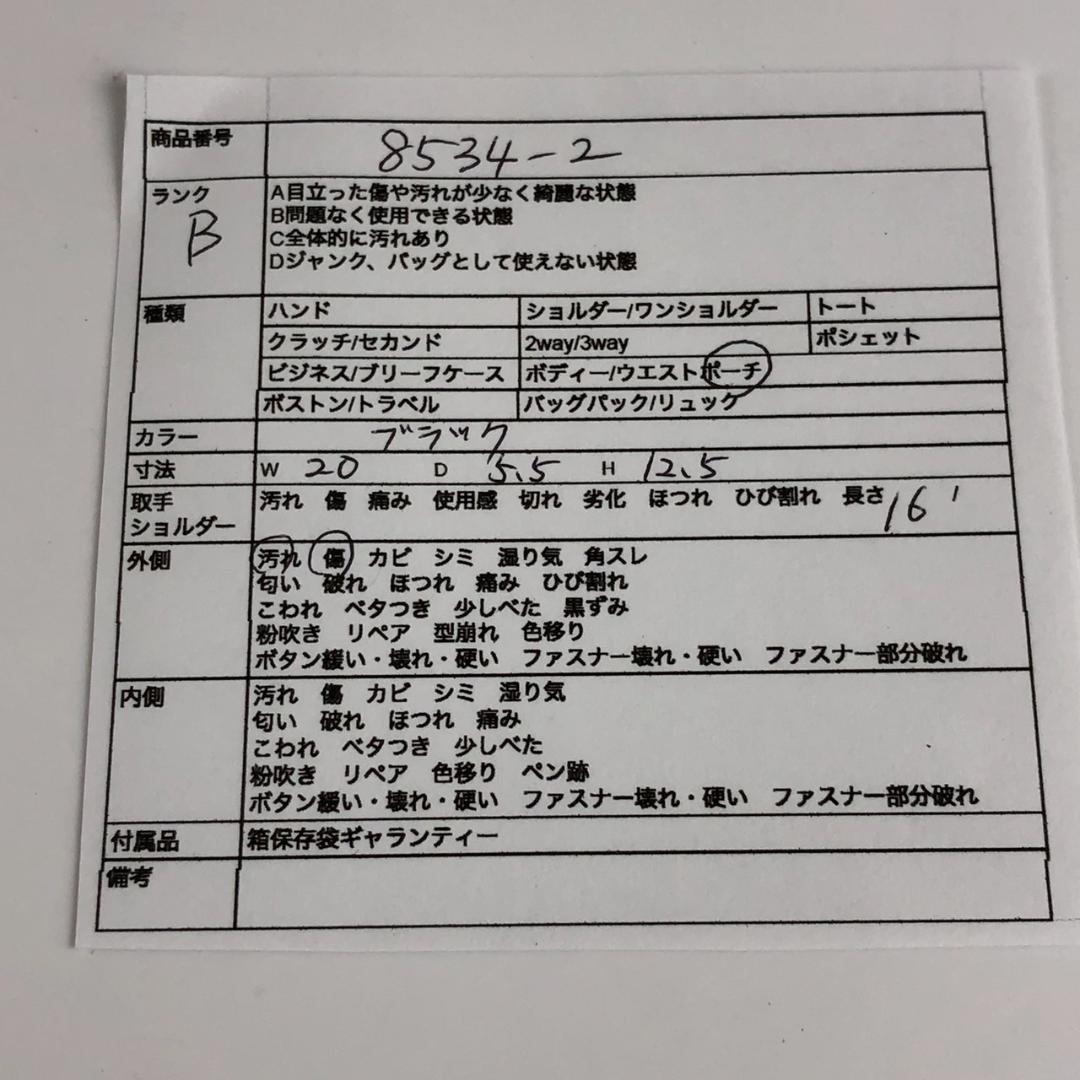 商品番号 8534-2
ランク B
A目立った傷や汚れが少なく綺麗な状態
B問題なく使用できる状態
C全体的に汚れあり
Dジャンク、バッグとして使えない状態
種類 ハンド ショルダー/ワンショルダー トート
クラッチ/セカンド 2way/3way ポシェット
ビジネス/ブリーフケース ボディー/ウエストポーチ
ボストン/トラベル バッグパック/リュック
カラー ブラック
寸法 W 20 D 5.5 H 12.5
取手 汚れ 傷 痛み 使用感 切れ 劣化 ほつれ ひび割れ 長さ 16
ショルダー
外側 汚れ 傷 カビ シミ 湿り気 角スレ
匂い 破れ ほつれ 痛み ひび割れ
こわれ ベタつき 少しべた 黒ずみ
粉吹き リペア 型崩れ 色移り
ボタン緩い・壊れ・硬い ファスナー壊れ・硬い ファスナー部分破れ
内側 汚れ 傷 カビ シミ 湿り気
匂い 破れ ほつれ 痛み
こわれ ベタつき 少しべた
粉吹き リペア 色移り ペン跡
ボタン緩い・壊れ・硬い ファスナー壊れ・硬い ファスナー部分破れ
付属品 箱保存袋ギャランティー
備考